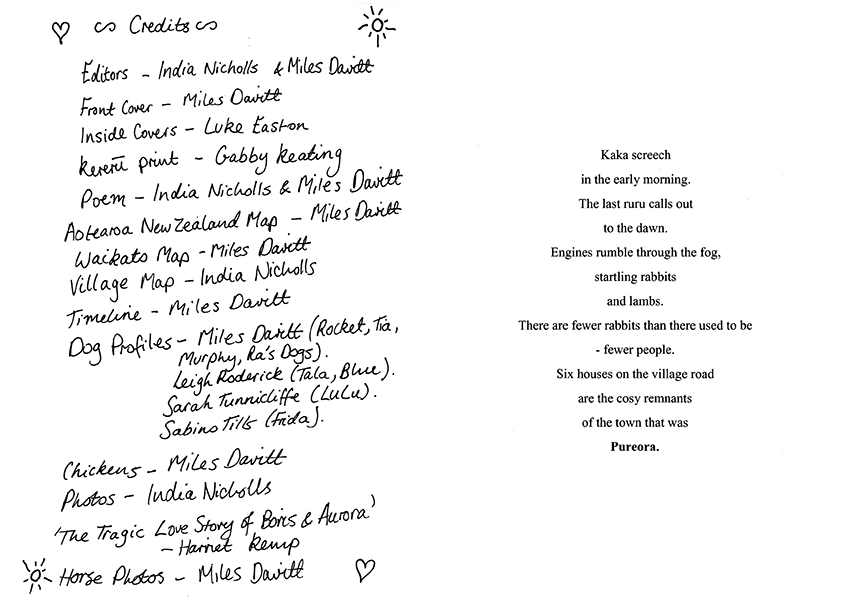 Credits
Editors - India Nicholls & Miles Davitt
Front Cover - Miles Davitt
Inside Covers - Luke Easton
Kererū print - Gabby Keating
Poem - India Nicholls & Miles Davitt
Aotearoa New Zealand Map - Miles Davitt
Waikato Map - Miles Davitt
Village Map - India Nicholls
Timeline - Miles Davitt
Dog Profiles - Miles Davitt (Rocket, Tia,
Murphy, Ra's Dogs).
Leigh Roderick (Tala, Blue).
Sarah Tunnicliffe (LuLu).
Sabine (Frida).
Chickens - Miles Davitt
Photos - India Nicholls
'The Tragic Love Story of Boris & Aurora'
- Harriet Kemp
Horse Photos - Miles Davitt
Kaka screech
in the early morning.
The last ruru calls out
to the dawn.
Engines rumble through the fog,
startling rabbits
and lambs.
There are fewer rabbits than there used to be
- fewer people.
Six houses on the village road
are the cosy remnants
of the town that was
Pureora.